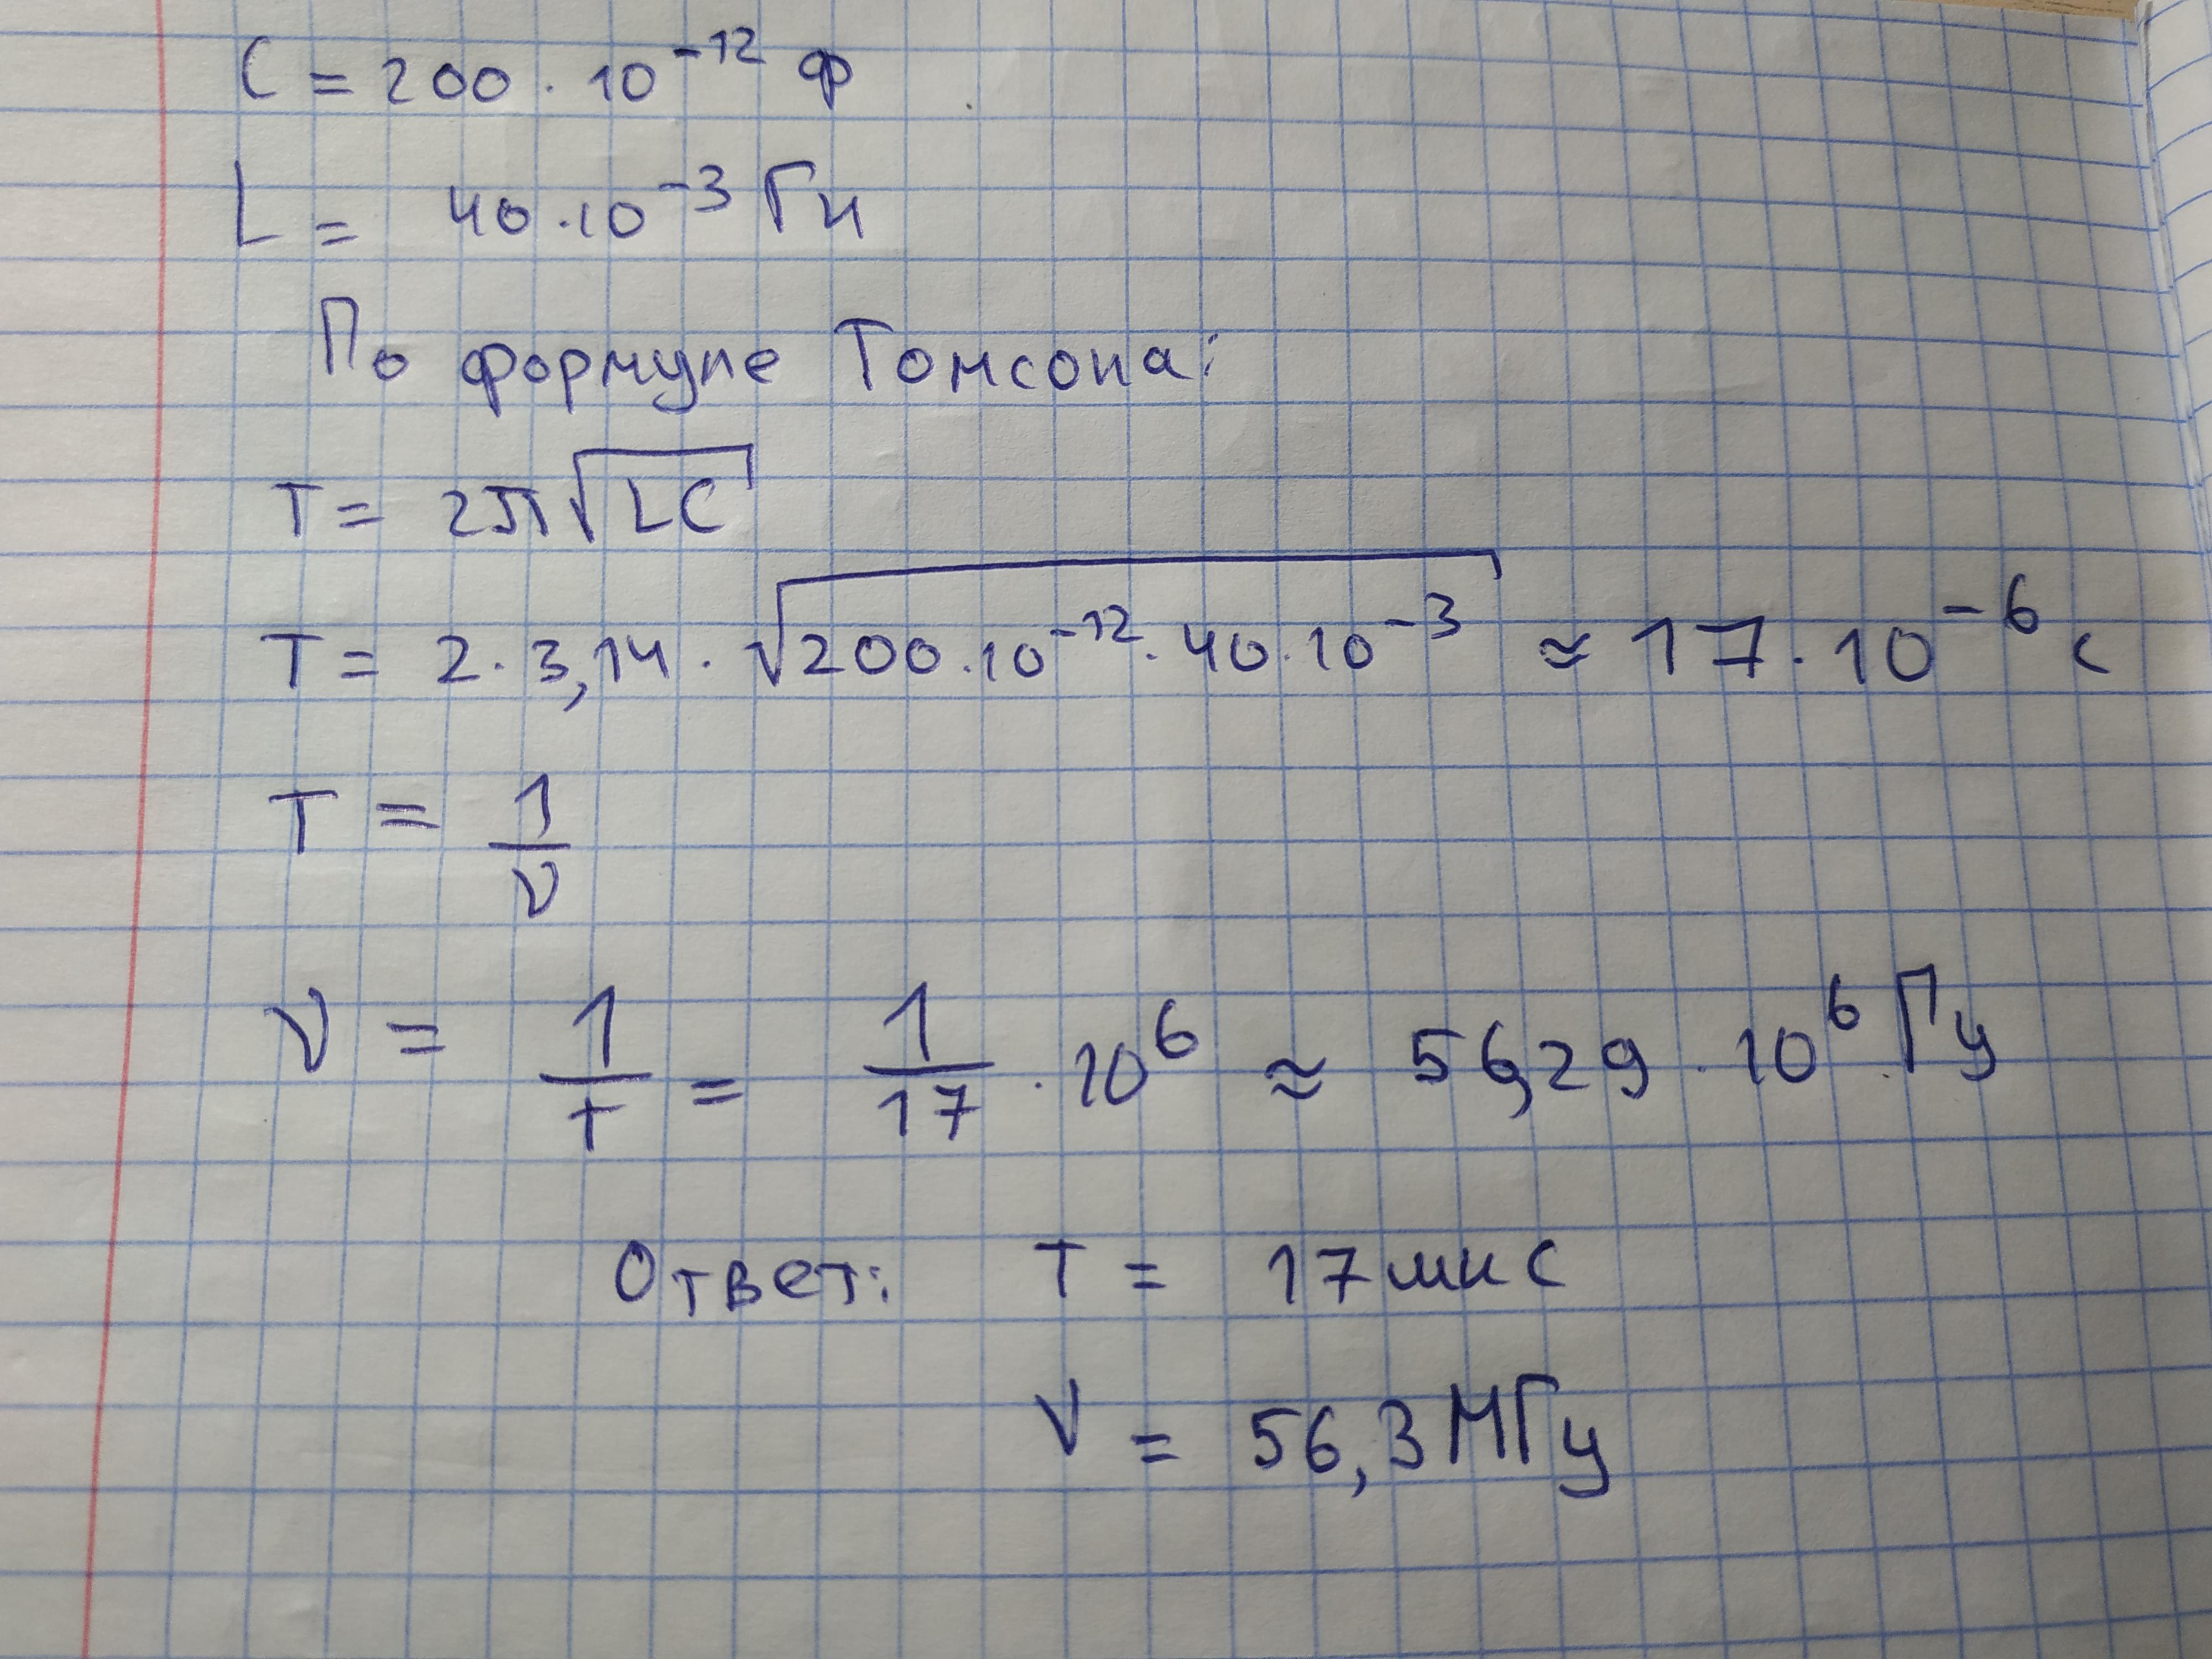 C = 200 · 10⁻¹² Ф
L = 40 · 10⁻³ Гн
По формуле Томсона:
T = 2π√LC
T = 2 · 3,14 · √200 · 10⁻¹² · 40 · 10⁻³ ≈ 17 · 10⁻⁶ с
T = 1/ν
ν = 1/T = 1/17 · 10⁶ ≈ 56,29 · 10⁶ Гц
Ответ: T = 17 мкс
ν = 56,3 МГц